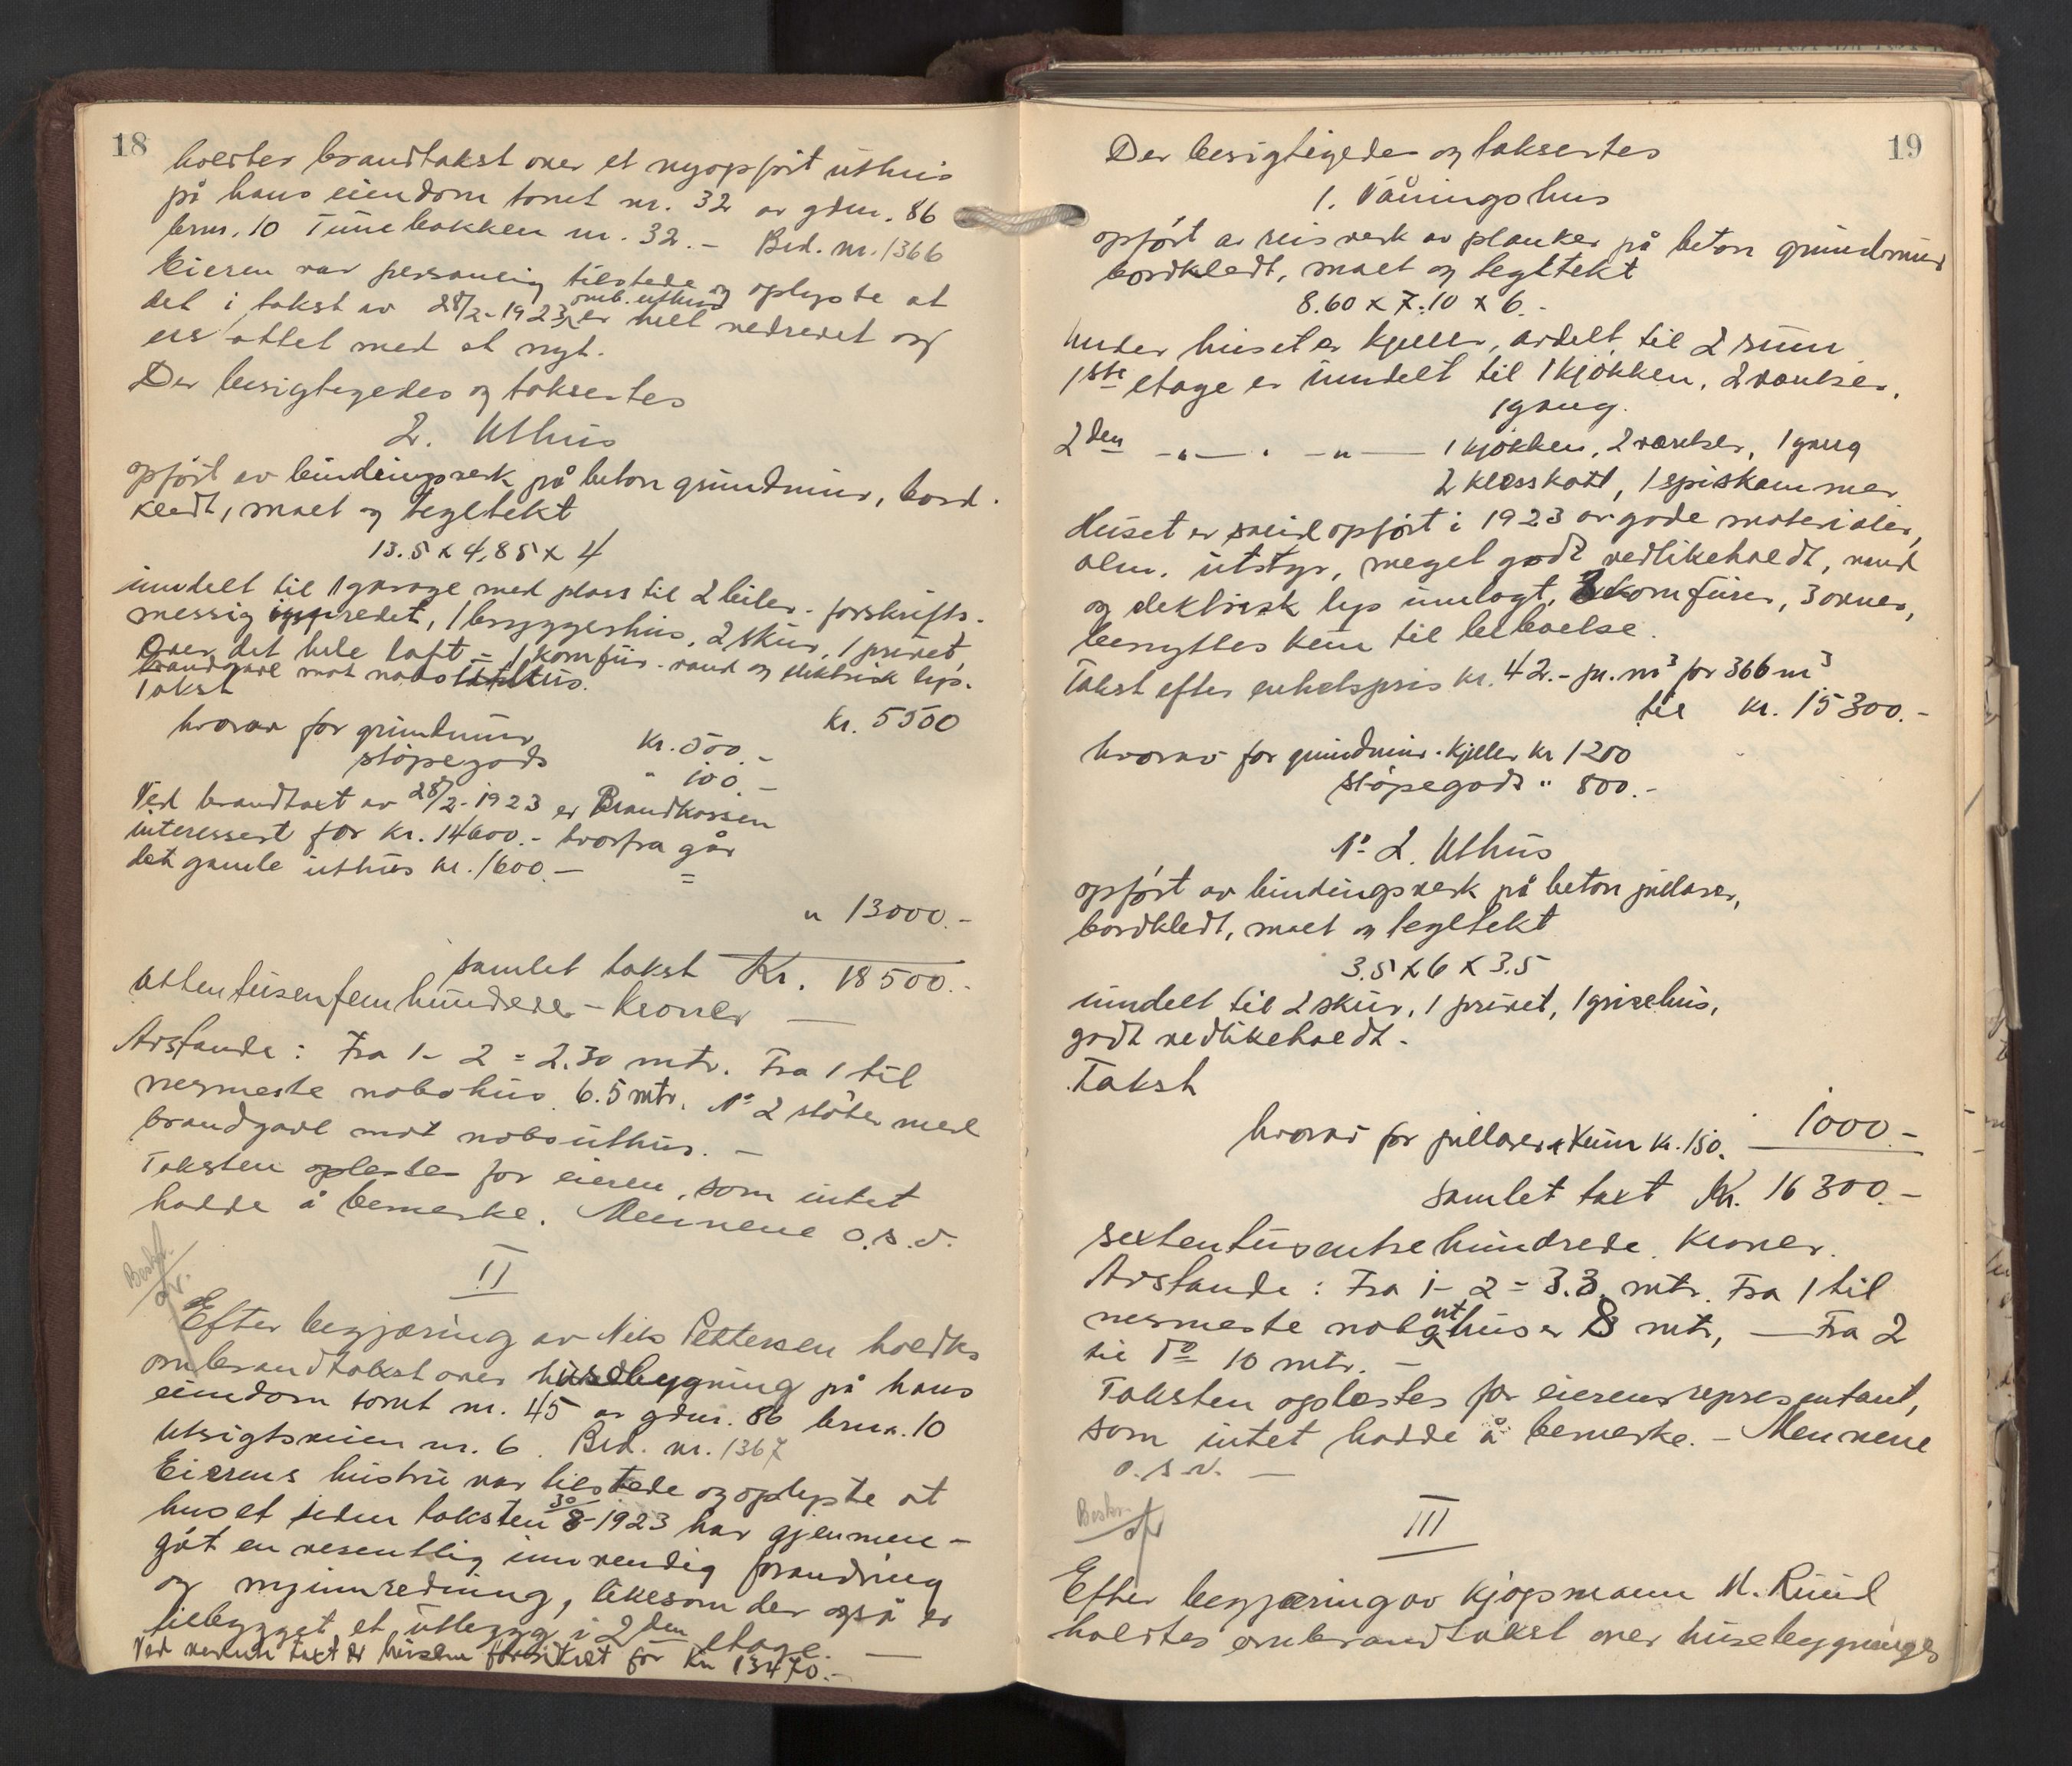 18
holdtes brandtakst over et nyopført uthus
på hans eiendom tomt nr. 32 av gdnr. 86
brnr. 10 Tunebakken nr. 32. – Brd. nr. 1366
Eieren var personlig tilstede og oplyste at
det i takst av 28/2-1923 omb. uthus er helt nedrevet og
erstattet med et nyt.
Der besigtigedes og taksertes
2. Uthus
opført av bindingsverk på beton grundmur, bord-
kledt, malt og tegltekt
13.5 x 4,85 x 4
inndelt til 1 garage med plass til 2 biler - forskrifts-
messig innredet, 1 bryggerhus, 2 skur, 1 privet,
over det hele loft = 1 komfür - vand og elektrisk lys.
brandgavl mot nabouthus.
Takst
kr. 5500
hvorav for grundmur kr. 500.-
støpegods " 100.-
Ved brandtaxt av 28/2-1923 er Brandkassen
interessert for kr. 14600.- hvorfra går
det gamle uthus kr. 1600.- =
" 13000.-
samlet takst Kr. 18500.-
attentusenfemhundrede - kroner —
Avstande: Fra 1 - 2 = 2.30 mtr. Fra 1 til
nermeste nabohus 6.5 mtr. No 2 støter med
brandgavl mot nabouthus. –
Taksten oplestes for eieren, som intet
hadde å bemerke. Mennene o.s.v.
II
Efter begjæring av Nils Pettersen holdtes
ombrandtakst over husebygning på hans
eiendom tomt nr. 45 av gdnr. 86 brnr. 10
Utsigtsveien nr. 6. Brd. nr. 1367
Eierens hustru var tilstede og oplyste at
huset siden taksten 30/8-1923 har gjennem-
gåt en vesentlig innvendig forandring
og nyinnredning, likesom der også er
tilbygget et utbygg i 2den etage. —
Ved nevnte taxt er husene forsikret for kr 13470.-
19
Der besigtigedes og taksertes
1. Våningshus
opført av reisverk av planker på beton grundmur
bordkledt, malt og tegltekt
8.60 x 7.10 x 6.-
Under huset er kjeller, avdelt til 2 rum
1ste etage er inndelt til 1 kjøkken, 2 værelser,
1 gang.
2den -"- . -"- 1 kjøkken, 2 værelser, 1 gang
2 klosskott, 1 spiskammer
Huset er opført i 1923 av gode materialer,
alm. utstyr, meget godt vedlikeholdt, vand
og elektrisk lys innlagt, 2 komfürer, 3 ovner,
benyttes kun til beboelse.
Takst efter enhetspris kr. 42.- pr. m3 for 366 m3
til kr. 15300.-
hvorav for grundmur - kjeller kr 1200
støpegods " 800.-
No 2. Uthus
opført av bindingsverk på beton pillarer,
bordkledt, malt og tegltekt
3.5 x 6 x 3.5
inndelt til 2 skur, 1 privet, 1 grisehus,
godt vedlikeholdt.
Takst
1000.-
hvorav for pillarer kr. 150.
samlet taxt Kr. 16300.-
sextentusentrehundrede kroner.
Avstande: Fra 1 - 2 = 3.3. mtr. Fra 1 til
nermeste nabouthus er 8 mtr, — Fra 2
til do 10 mtr. –
Taksten oplestes for eierens representant,
som intet hadde å bemerke. – Mennene
o.s.v. —
III
Efter begjæring av kjøpmann M. Ruud
holdtes ombrandtakst over husebygninger